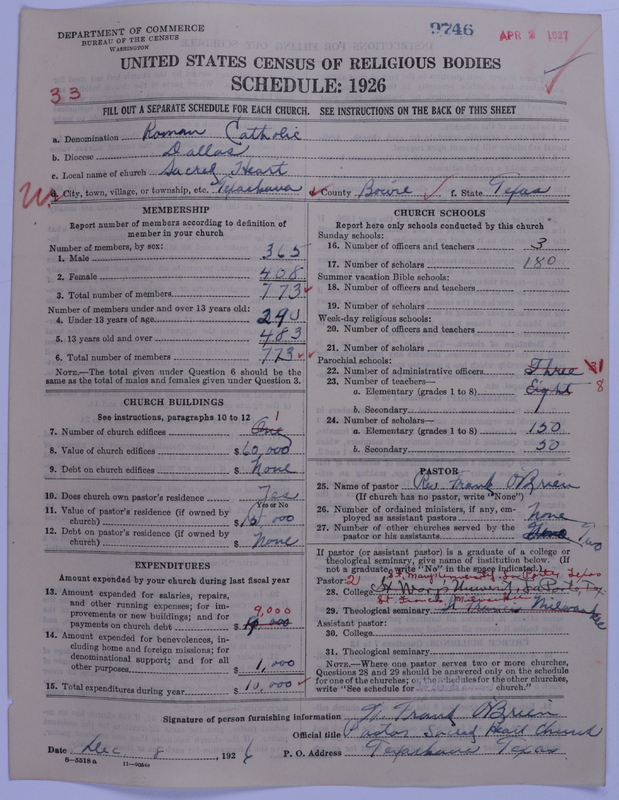 DEPARTMENT OF COMMERCE
BUREAU OF THE CENSUS
WASHINGTON
9746
APR 2 1927
UNITED STATES CENSUS OF RELIGIOUS BODIES
SCHEDULE: 1926
33
FILL OUT A SEPARATE SCHEDULE FOR EACH CHURCH. SEE INSTRUCTIONS ON THE BACK OF THIS SHEET
a. Denomination Roman Catholic
b. Diocese Dallas
c. Local name of church Sacred Heart
d. City, town, village, or township, etc. Texarkana County Bowie f. State Texas
MEMBERSHIP
Report number of members according to definition of member in your church
Number of members, by sex:
1. Male 365
2. Female 408
3. Total number of members 773
Number of members under and over 13 years old:
4. Under 13 years of age 290
5. 13 years old and over 483
6. Total number of members 773
NOTE.—The total given under Question 6 should be the
same as the total of males and females given under Question 3.
CHURCH BUILDINGS
See instructions, paragraphs 10 to 12
7. Number of church edifices One 1
8. Value of church edifices $ 60,000
9. Debt on church edifices $ None
10. Does church own pastor's residence Yes
Yes or No
11. Value of pastor's residence (if owned by
church) $ ,000
12. Debt on pastor's residence (if owned by
church) $ None
EXPENDITURES
Amount expended by your church during last fiscal year
13. Amount expended for salaries, repairs,
and other running expenses; for im-
provements or new buildings; and for
payments on church debt $ 9,000
14. Amount expended for benevolences, in-
cluding home and foreign missions; for
denominational support; and for all
other purposes $ 1,000
15. Total expenditures during year $ 10,000
CHURCH SCHOOLS
Report here only schools conducted by this church
Sunday schools:
16. Number of officers and teachers 3
17. Number of scholars 180
Summer vacation Bible schools:
18. Number of officers and teachers
19. Number of scholars
Week-day religious schools:
20. Number of officers and teachers
21. Number of scholars
Parochial schools:
22. Number of administrative officers Three
23. Number of teachers—
a. Elementary (grades 1 to 8) Eight 8
b. Secondary
24. Number of scholars—
a. Elementary (grades 1 to 8) 150
b. Secondary 50
PASTOR
25. Name of pastor Rev Frank O'Brien
(If church has no pastor, write "None")
26. Number of ordained ministers, if any, em-
ployed as assistant pastors None
27. Number of other churches served by the
pastor or his assistants Two
If pastor (or assistant pastor) is a graduate of a college or
theological seminary, give name of institution below. (If
not a graduate, write "No" in the space indicated.)
Pastor: St. Mary's University, La Porte, Texas
28. College St Mary's University, La Porte Tex
St. Francis, Milwaukee
29. Theological seminary St Francis Milwaukee
Assistant pastor:
30. College
31. Theological seminary
NOTE.—Where one pastor serves two or more churches,
Questions 28 and 29 should be answered only on the schedule
for one of the churches; on the schedules for the other churches,
write "See schedule for church."
Signature of person furnishing information Frank O'Brien
Official title Pastor Sacred Heart Church
Date Dec 8, 1926 P. O. Address Texarkana Texas
8—5518 a